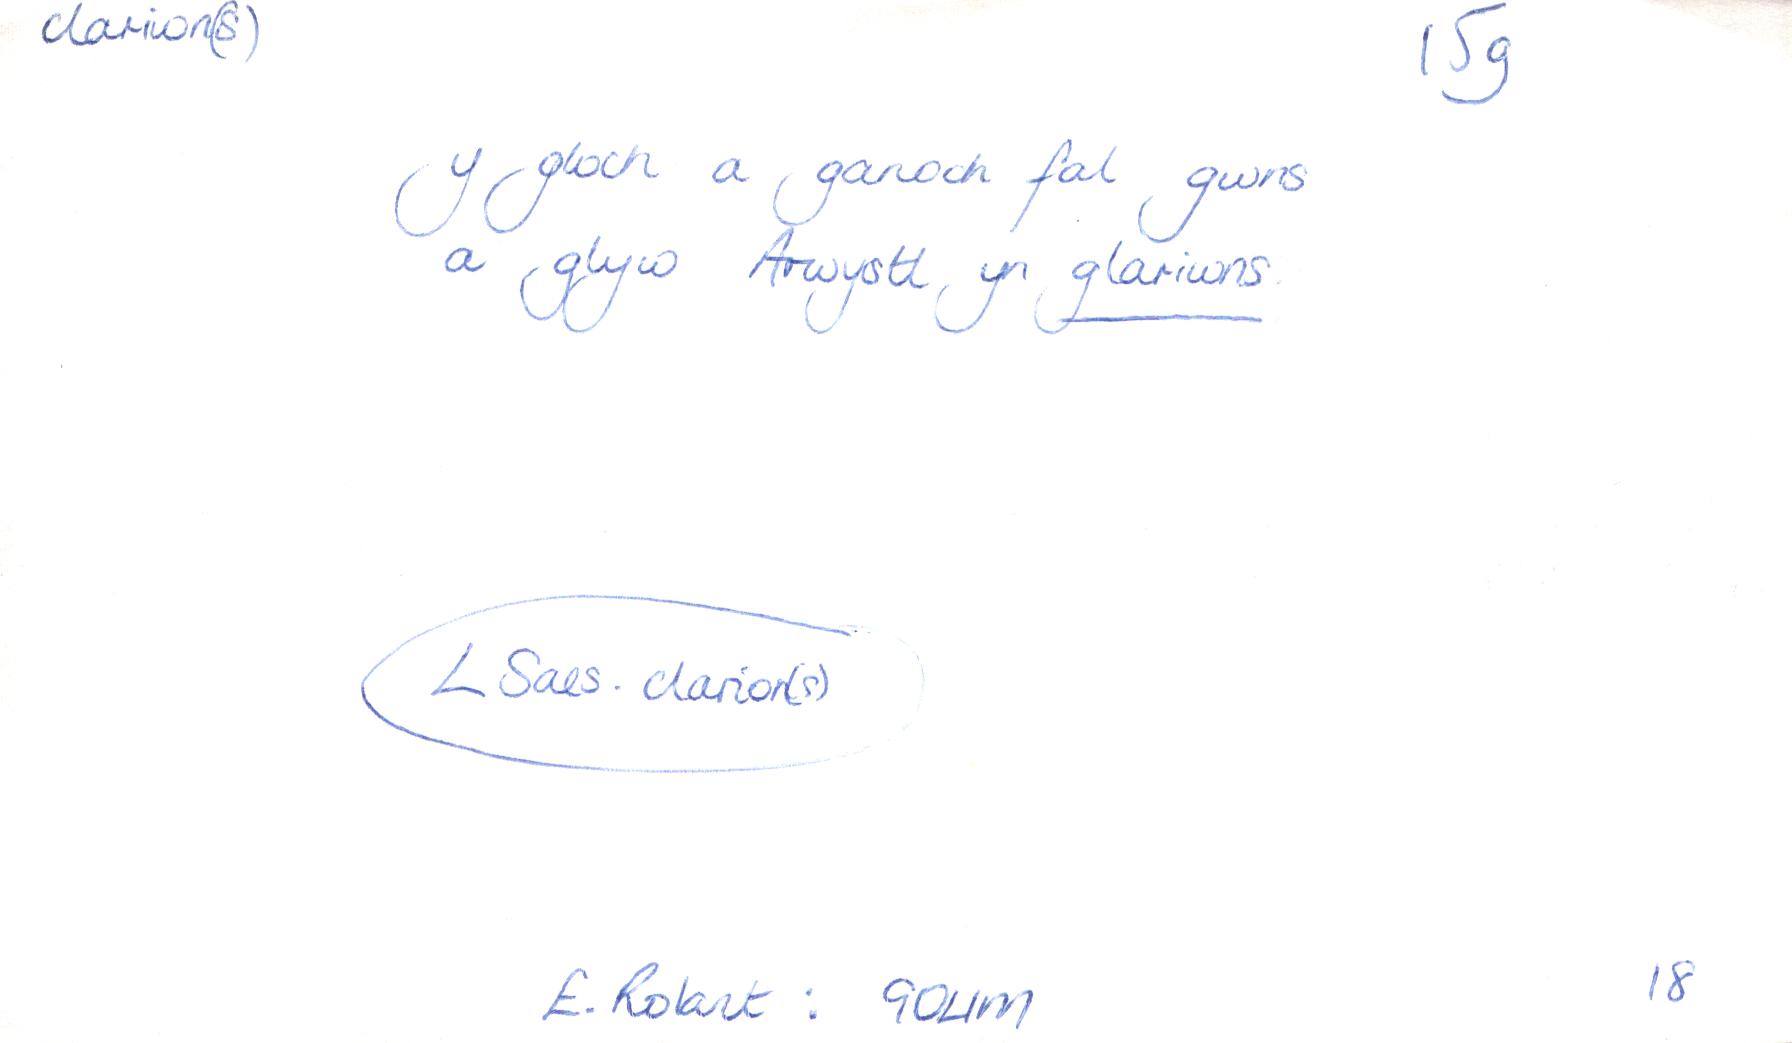 clariwn(s) 15g
y gloch a ganoch fal gwns
a glyw Arwystl yn glariwns.
< Saes. clarion(s)
E. Rolant : GOLlM 18